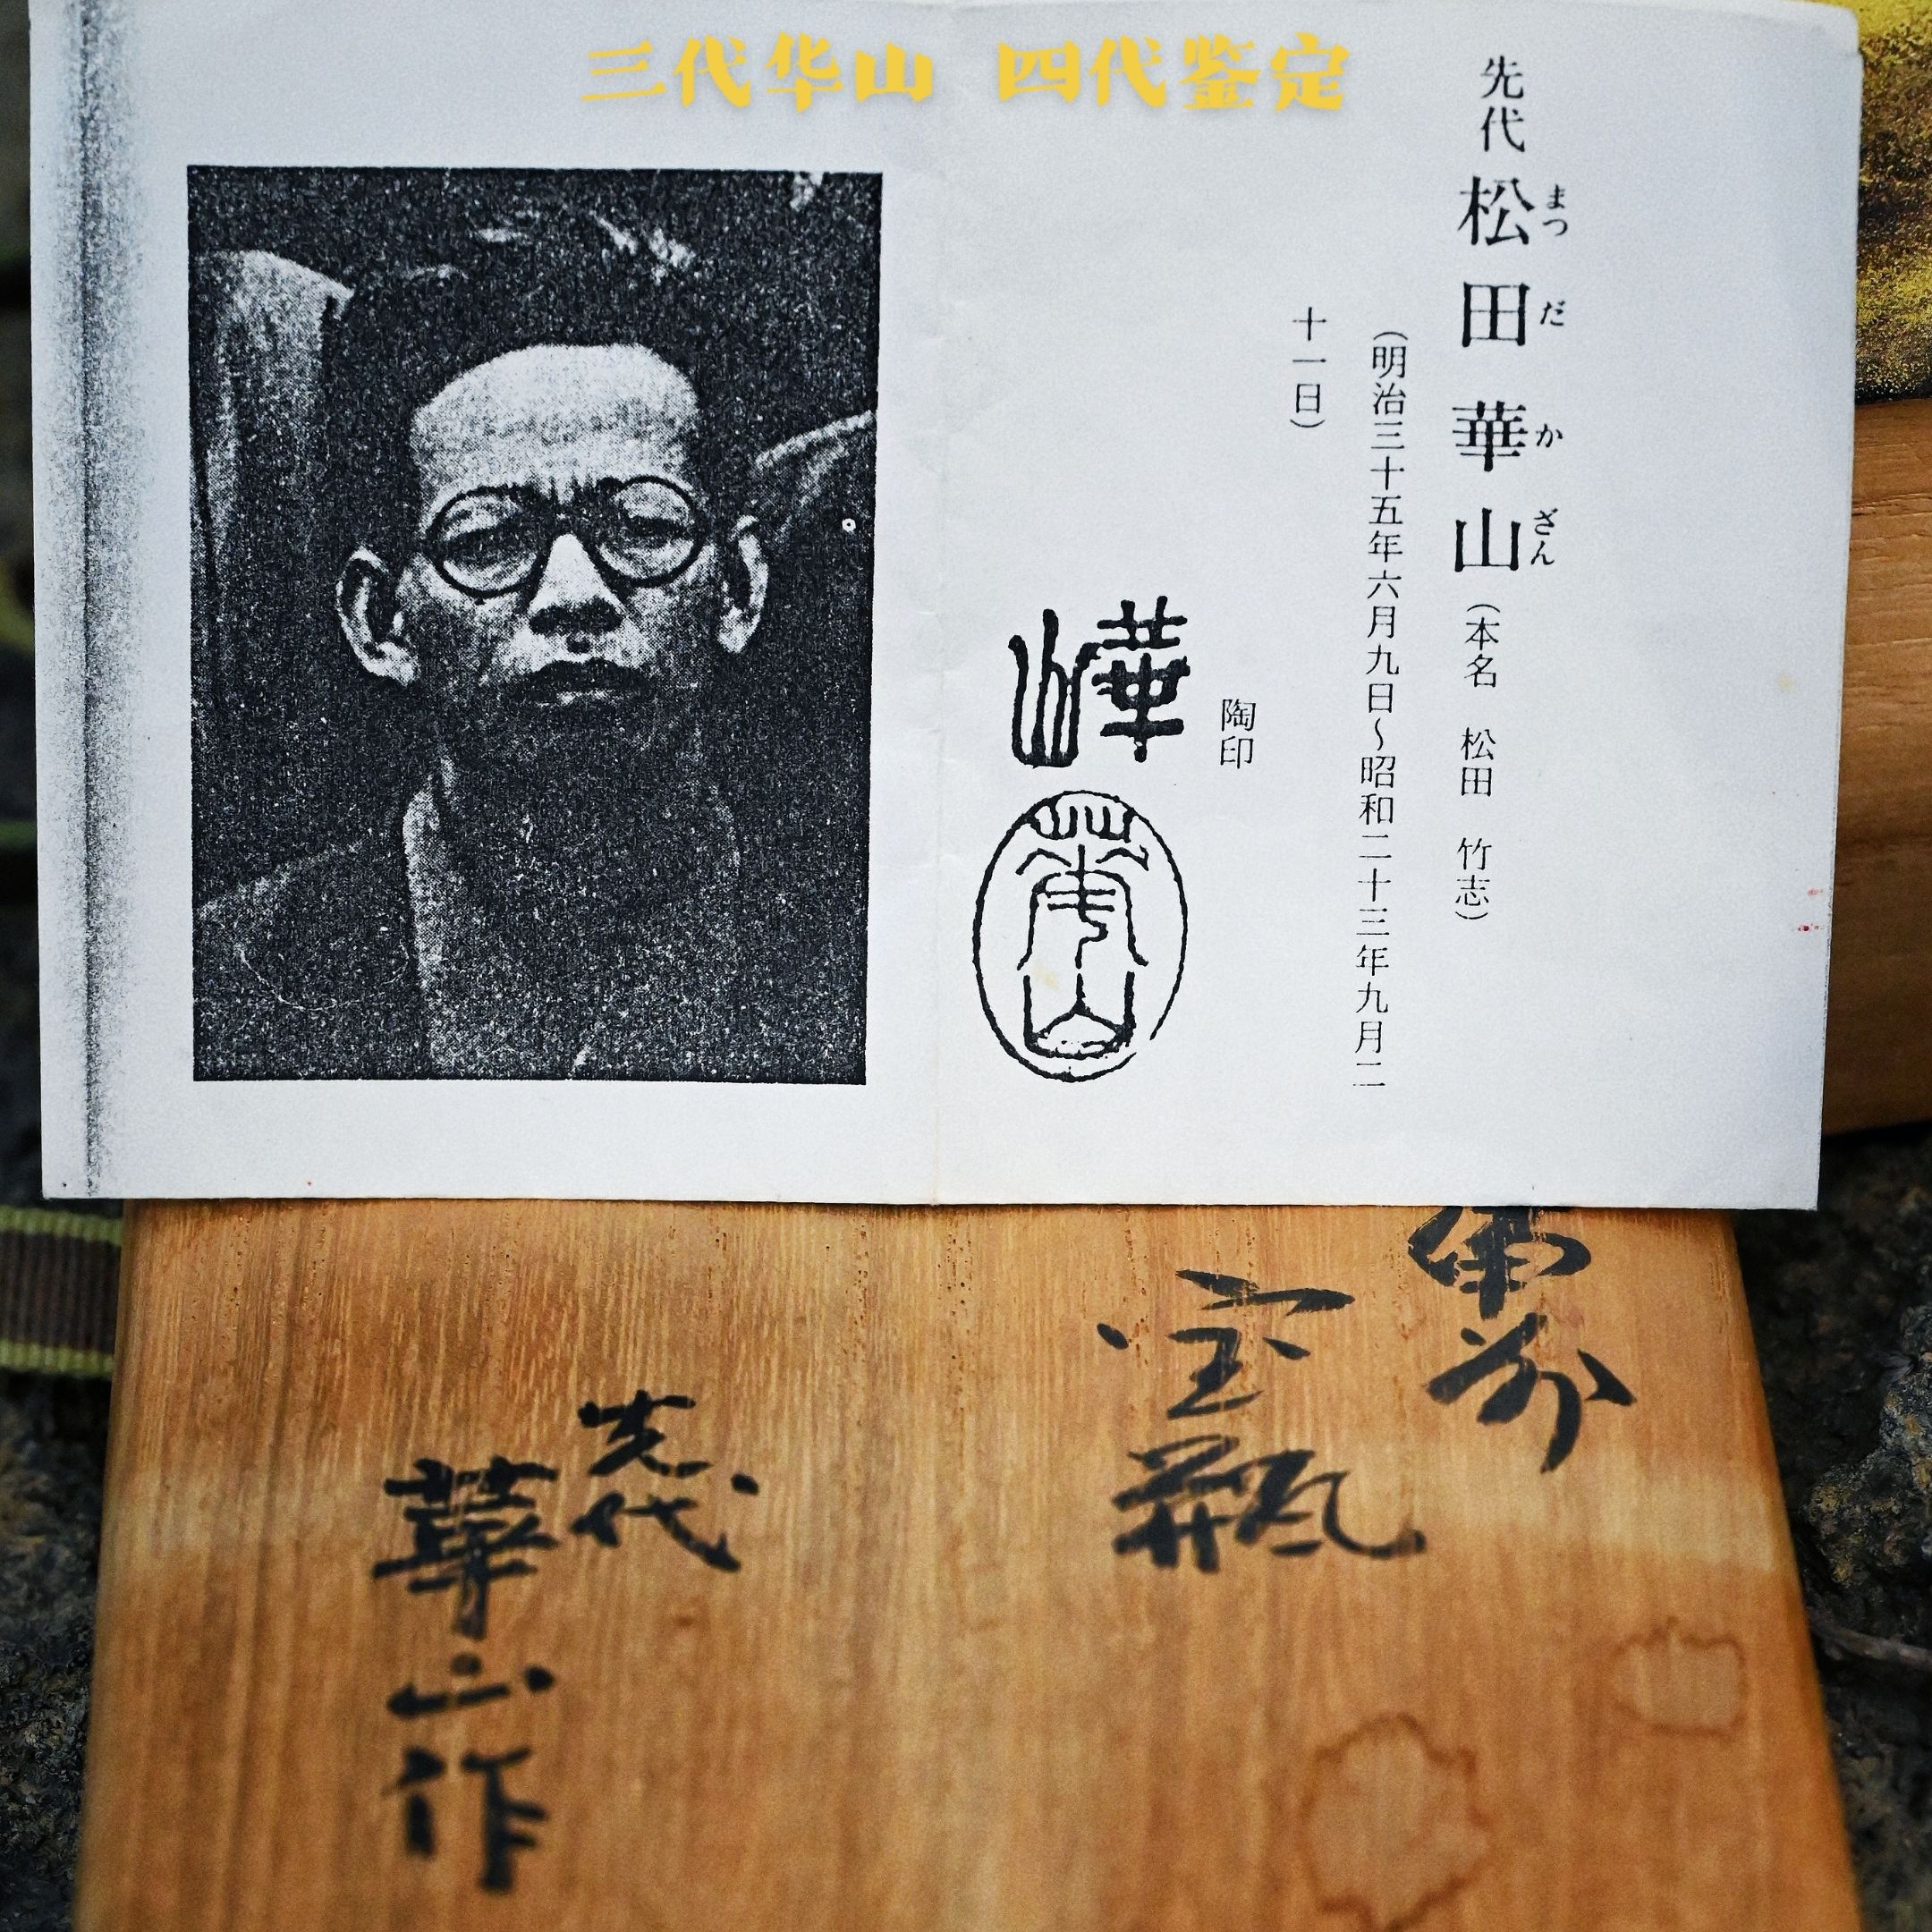 三代华山 四代鉴定
先代 松田華山（本名 松田 竹志）
まつ だ か ざん
（明治三十五年六月九日～昭和二十三年九月二
十一日）
陶印
華山
華山
備前
宝瓶
先代
華山作